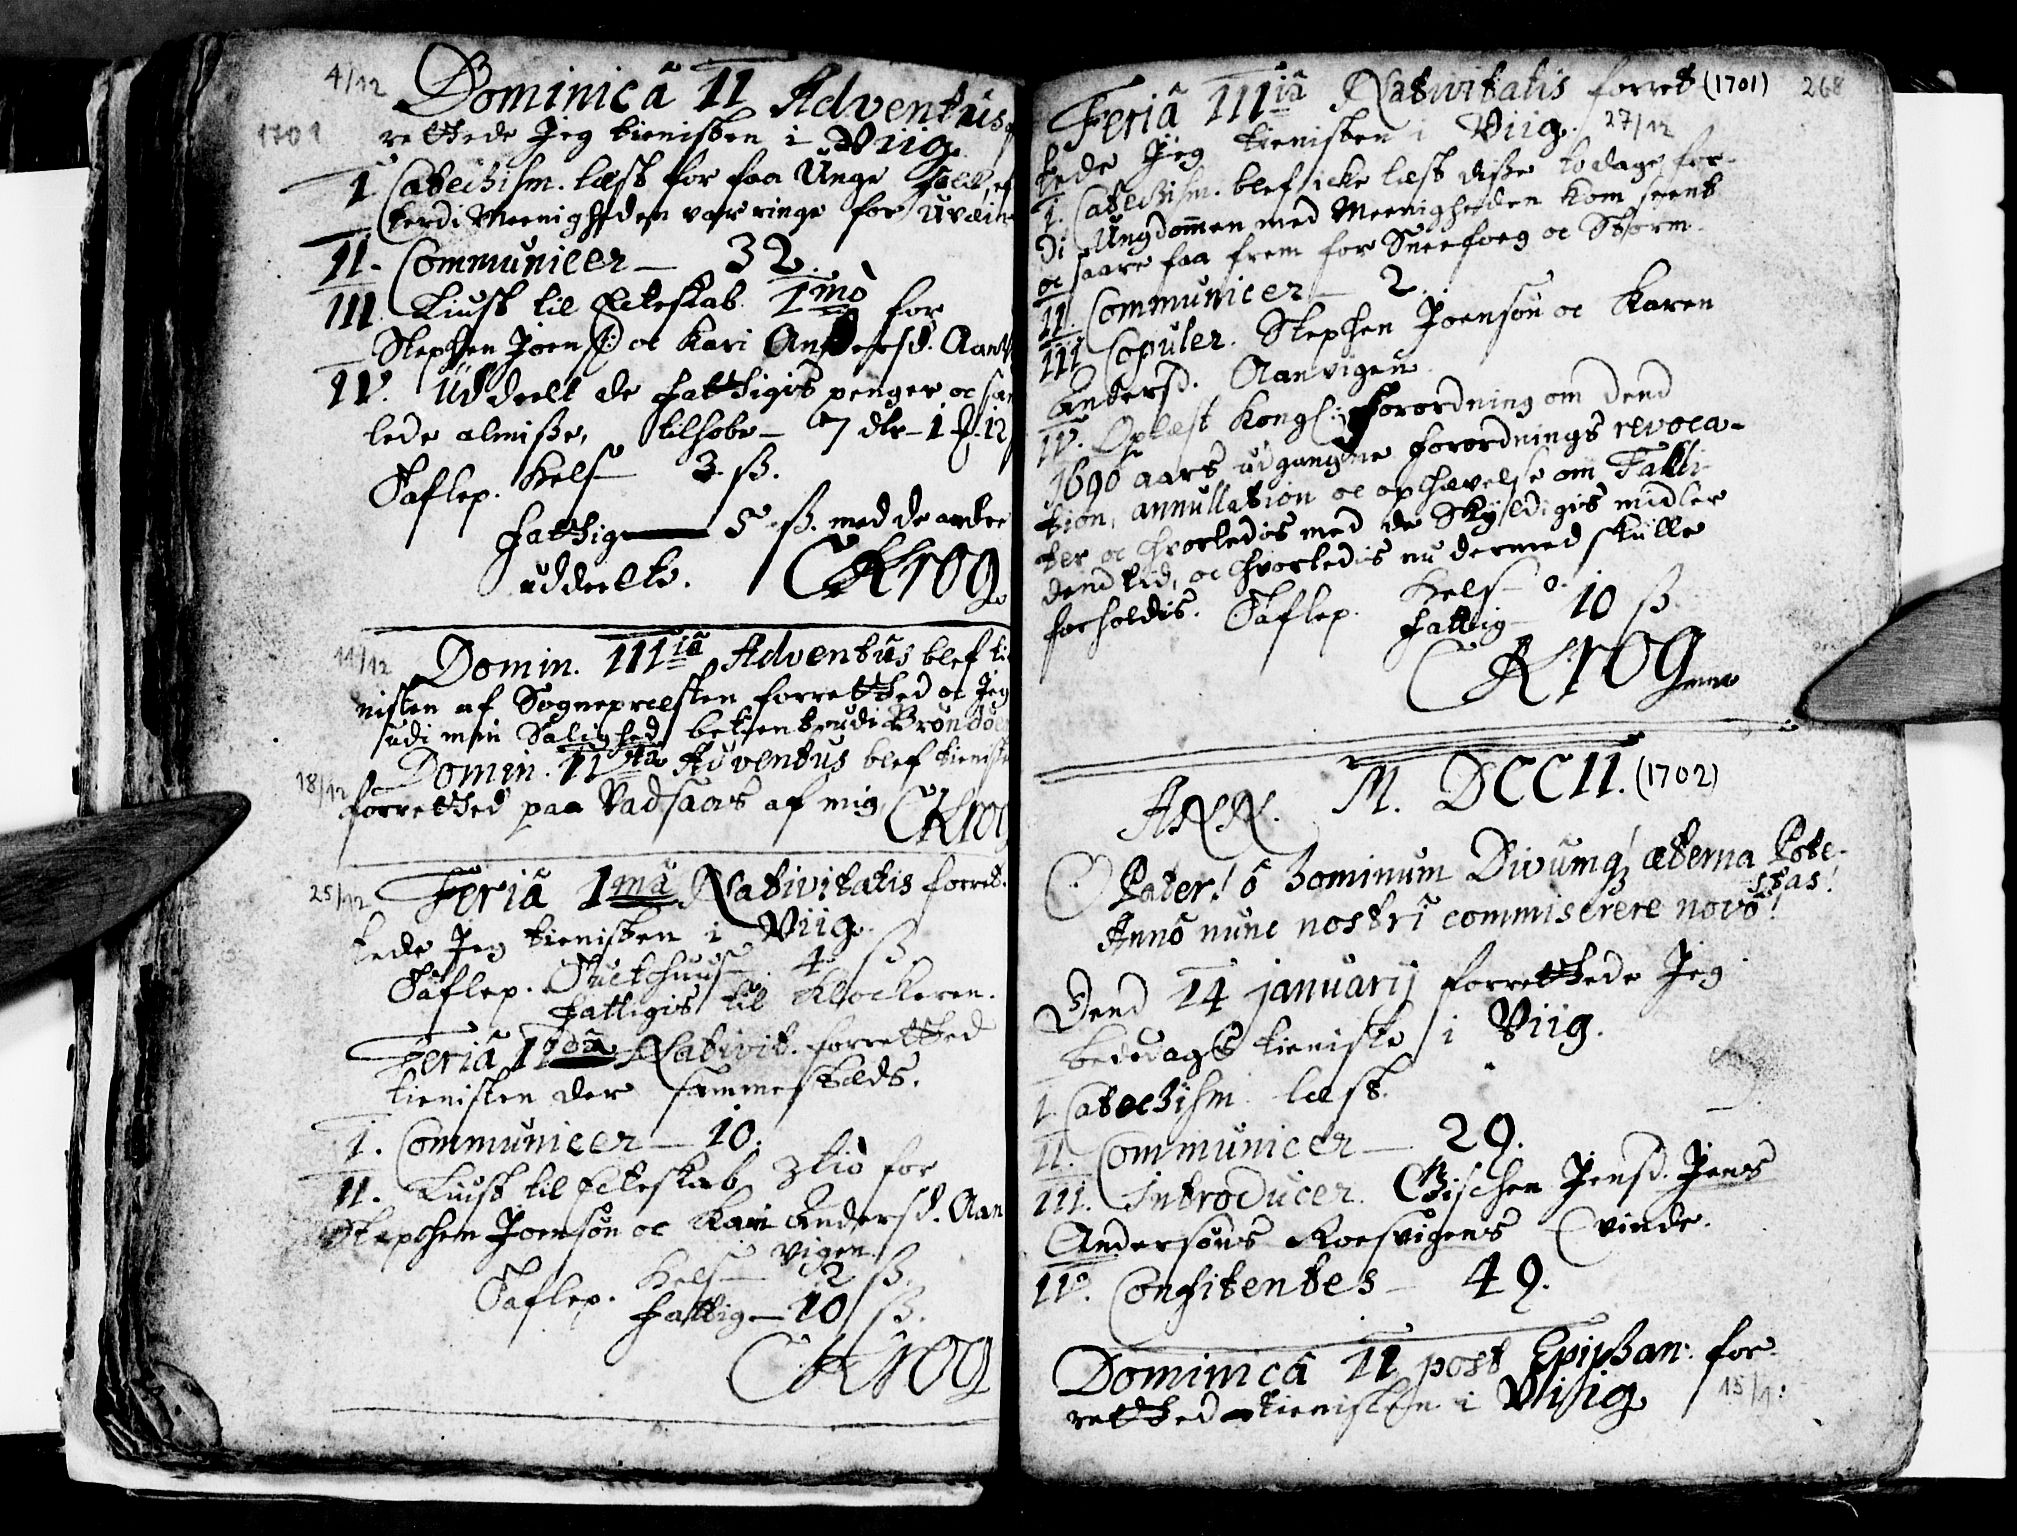 4/12 Dominicâ II Adventûs
1701 rettede Jeg tienisten i Viig
I Catechism. læst for faa Unge folk, ef
terdi Meenigheden var ringe for uvæir
II. Communicer — 32.
III. Liust til Ecteskab 1mò for
Stephen Joens. oc Kari Andersd. Aanv
IV. Uddeelt de fattigis penger oc sam
lede almisse, tilhobe — 7 dlr – 1 12
Taflep. Hels — 3. ß.
fattig — 5 ß. med de andre
uddeelte. CKrog
11/12 Domin. IIIiâ Adventûs blef ti
nisten af Sognepræsten forretthed oc Jeg
udi min Salighed betient udi Brønnöe
18/12 Domin. IVta Adventus blef tieniste
forretthed paa Vadsaas af mig CKrog
25/12 Feriâ 1mâ Nativitatis forret-
tede Jeg tienisten i Viig.
Taflep. Tuctshuus 4 ß
fattigis til Klockeren.
Feriâ IIdâ Nativit. forretthed
tienisten der sammestæds.
I. Communicer — 10.
II. Liust til Ecteskab 3tiò for
Stephen Joensøn oc Kari Andersd. Aan
vigen.
Taflep. Hels — 2 ß.
fattig — 10 ß.
CKrog
Feriâ IIIiâ Nativitatis forret (1701) 268
tede Jeg tienisten i Viig. 27/12
I. Catechism. blef icke læst disse to dage for-
di Ungdommen med Meenigheden kom seent
oc saare faa frem for Sneefoeg oc Storm.
II Communicer — 2.
III Copuler. Stephen Joensøn oc Karen
Andersd. Aanvigen.
IV. Oplæst Kongl: Forordning om dend
1690 aars udgangne forordnings revoca-
tion, annullation oc ophævelse om Falli-
ter oc hvorledis med de Skyldigis midler
dend tid, oc hvorledis nu dermed skulle
forholdis. Taflep. Hels — 0.
fattig — 10 ß
CKrog
Ann. M. DCCII. (1702)
O Pater! ô hominum Divumq; æterna Pote-
stas!
Annô nunc nostrî commiserere novô!
Dend 14 januarij forretthede Jeg
bededags tieniste i Viig.
I Catechism. læst.
II. Communicer — 29.
III. Introducer. Gischen Jensd. Jens
Andersøns Roesvigens Qvinde.
IV. Confitentes — 49.
Dominicâ II post Epiphan: for-
retthed tienisten i Viig 15/1.